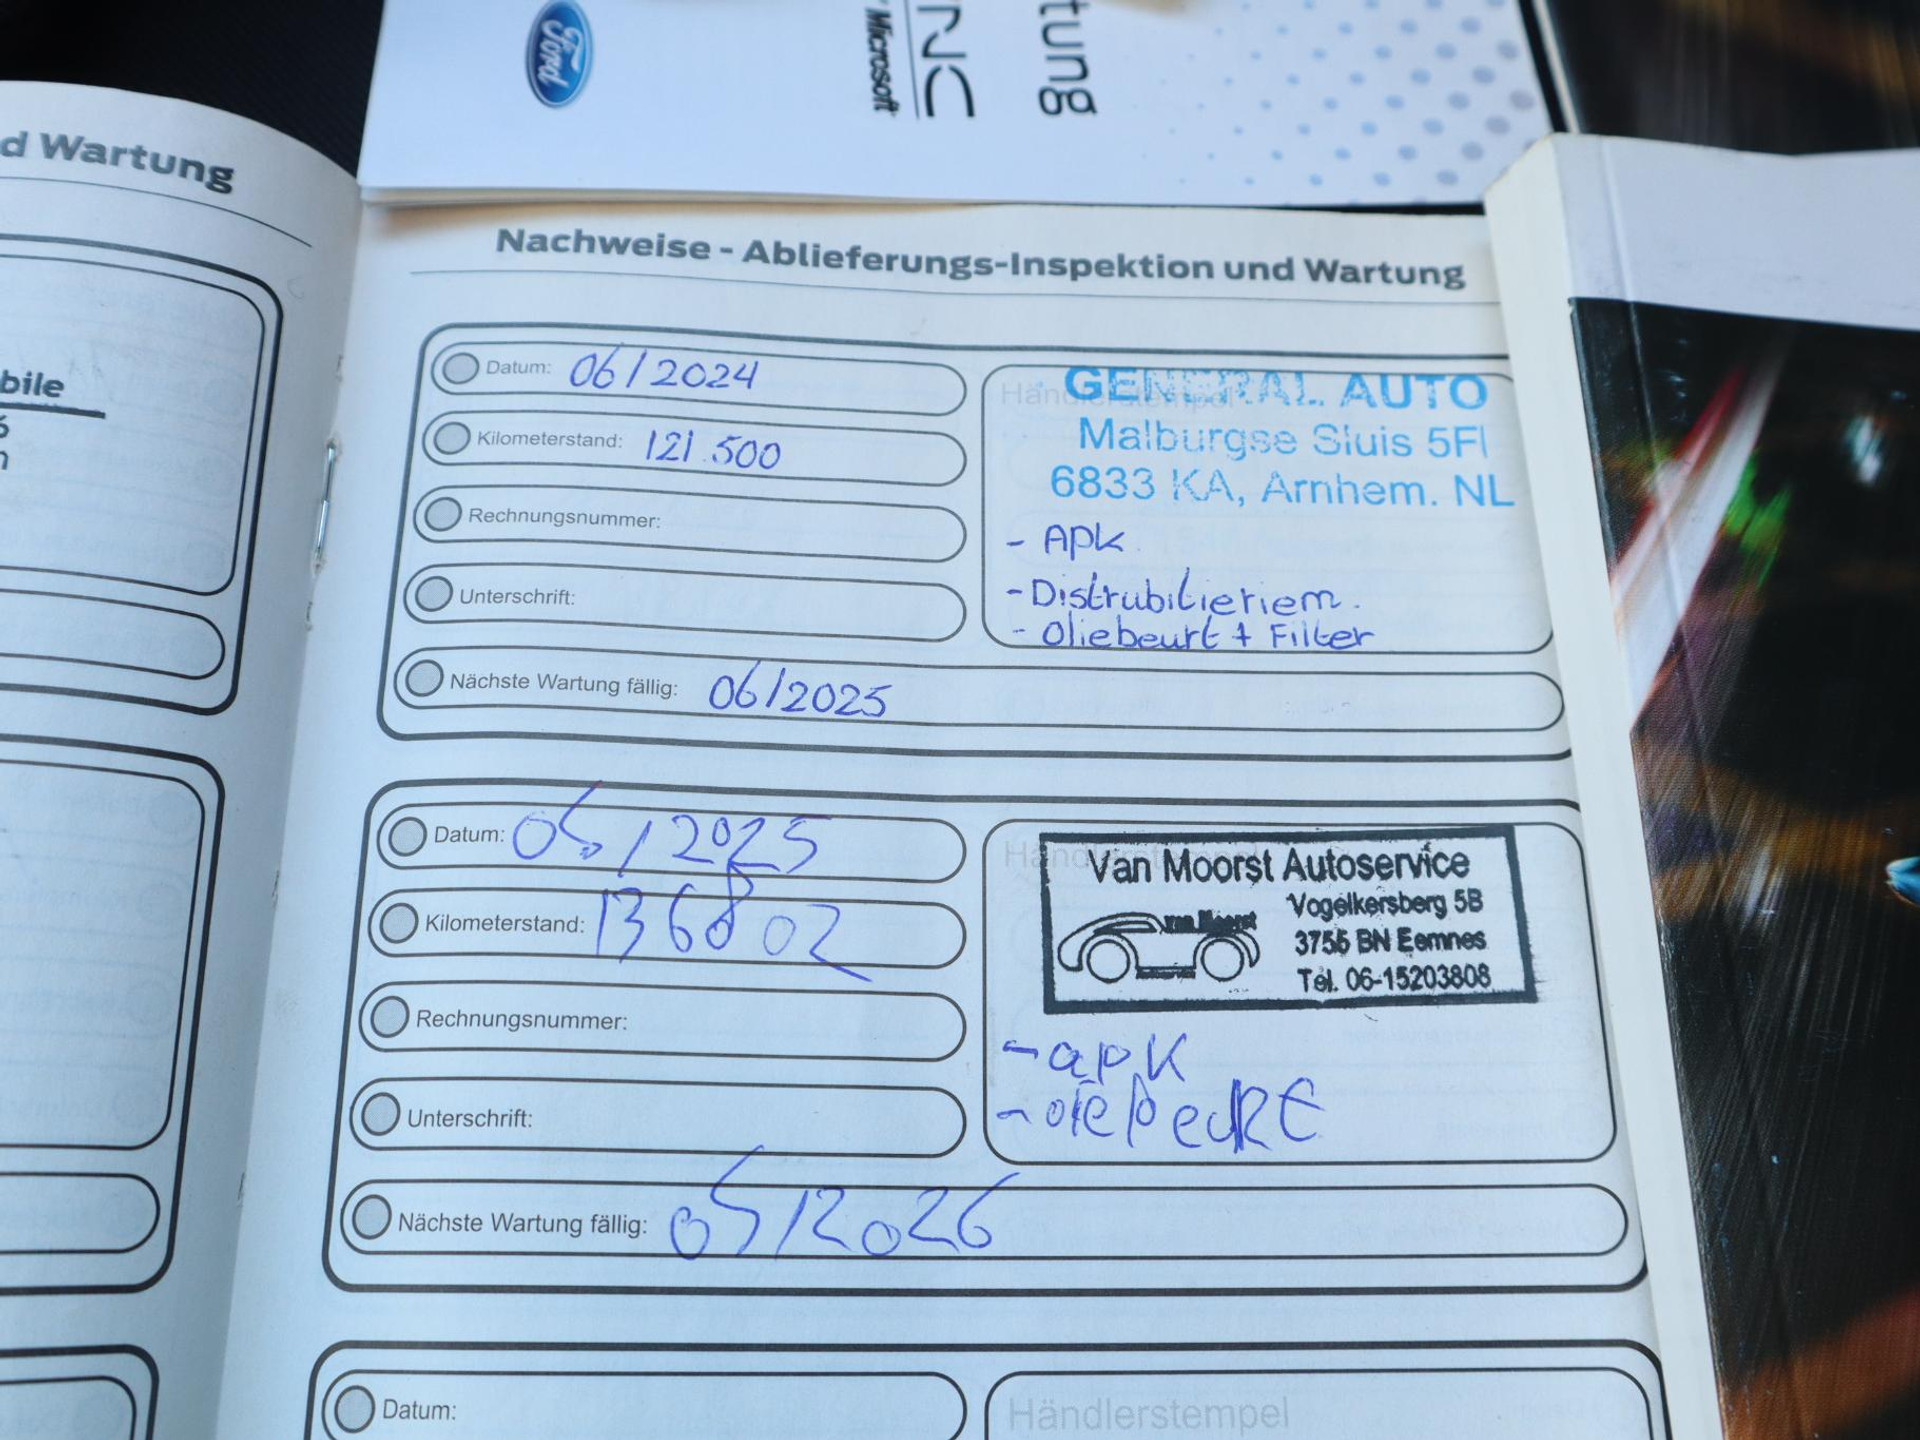 Ford
Microsoft
NC
tung
d Wartung
bile
Nachweise - Ablieferungs-Inspektion und Wartung
Datum: 06/2024
Kilometerstand: 121.500
Rechnungsnummer:
Unterschrift:
Nächste Wartung fällig: 06/2025
Händlerstempel
GENERAL AUTO
Malburgse Sluis 5FI
6833 KA, Arnhem. NL
- APK
- Distrubitieriem.
- Oliebeurt + Filter
Datum: 05/2025
Kilometerstand: 136802
Rechnungsnummer:
Unterschrift:
Nächste Wartung fällig: 05/2026
Händlerstempel
Van Moorst Autoservice
van Moorst
Vogelkersberg 5B
3755 BN Eemnes
Tel. 06-15203808
- apk
- oliebeurt
Datum:
Händlerstempel